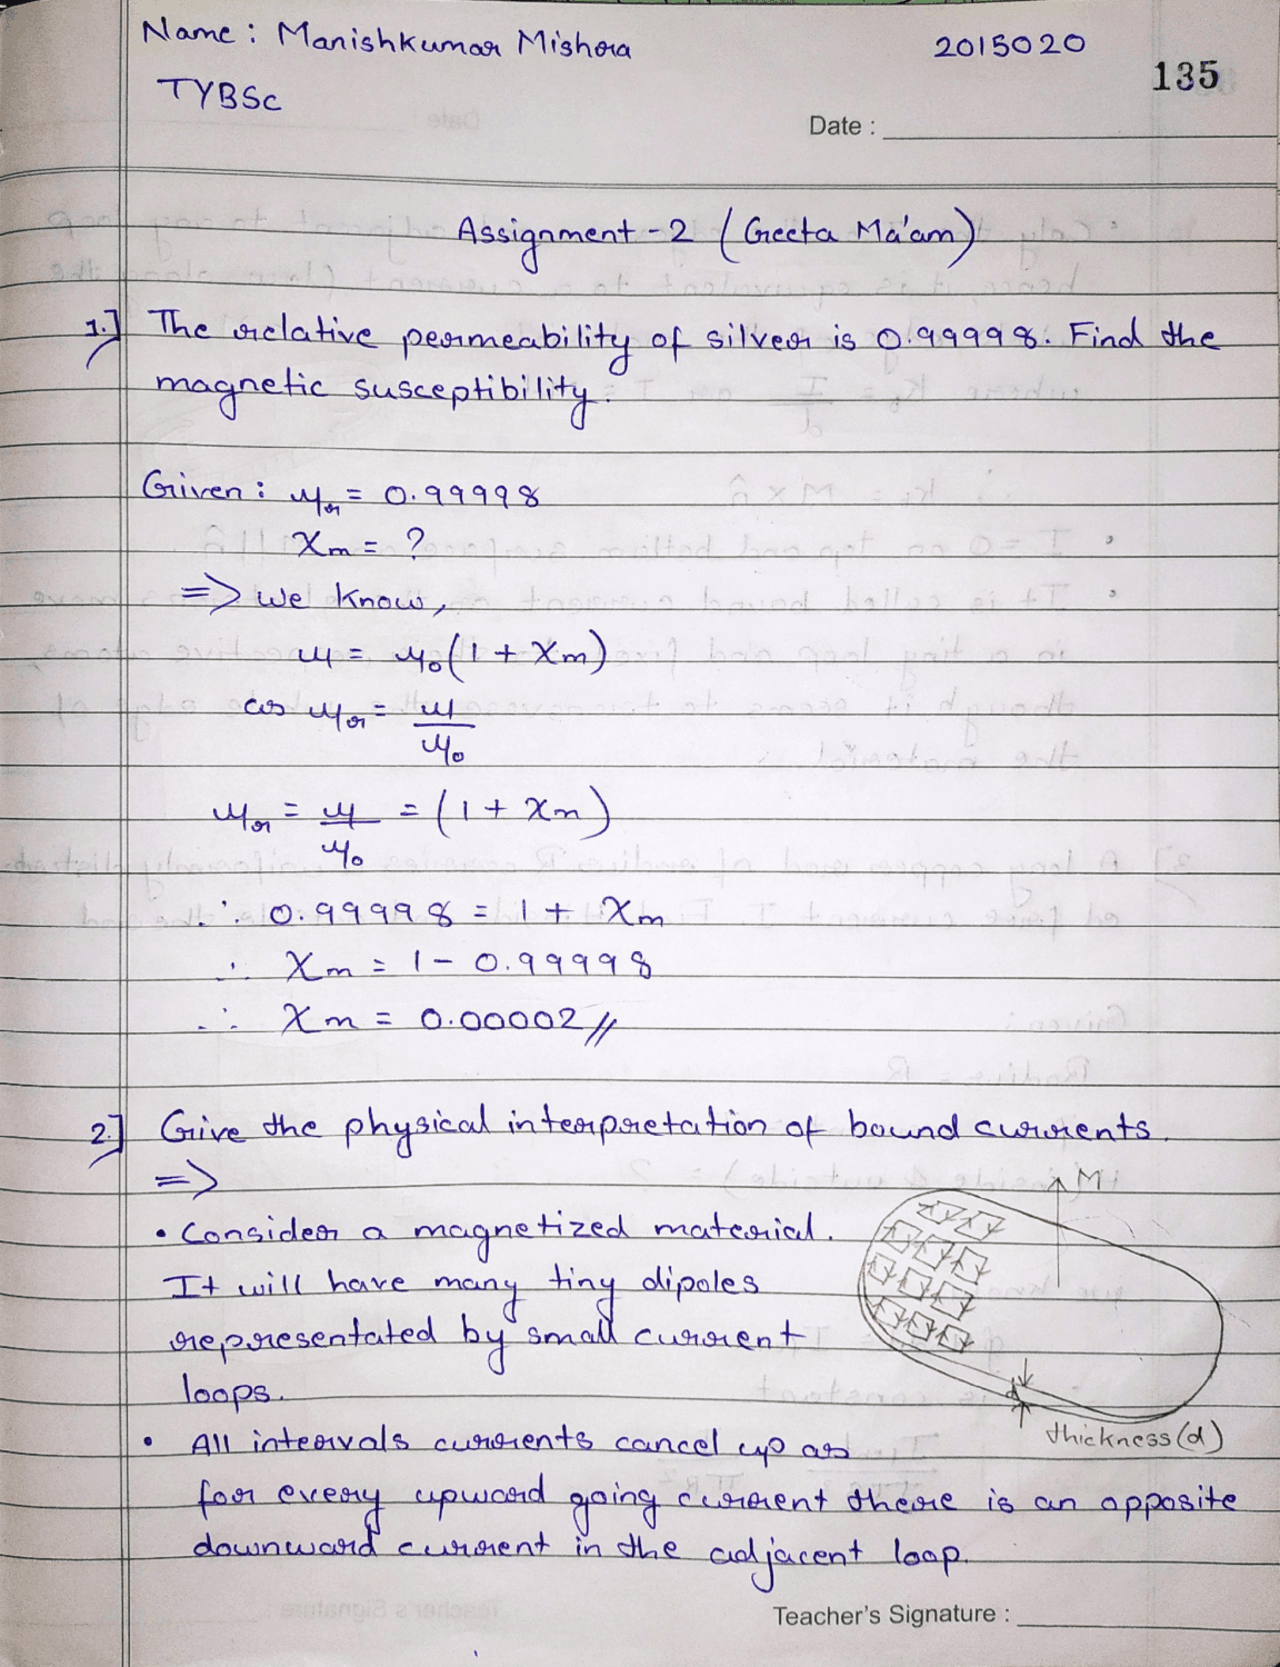 Name : Manishkumar Mishra
2015020
135
TYBSc
Date :
Assignment - 2 (Geeta Ma'am)
1.] The relative permeability of silver is 0.99998. Find the
magnetic susceptibility.
Given : μr = 0.99998
χm = ?
=> we know,
μ = μ0(1 + χm)
as μr = μ/μ0
μr = μ/μ0 = (1 + χm)
∴ 0.99998 = 1 + χm
∴ χm = 1 - 0.99998
∴ χm = 0.00002 //
2.] Give the physical interpretation of bound currents.
=>
M
• Consider a magnetized material.
It will have many tiny dipoles
representated by small current
loops.
thickness (d)
• All intervals currents cancel up as
for every upward going current there is an opposite
downward current in the adjacent loop.
Teacher's Signature :